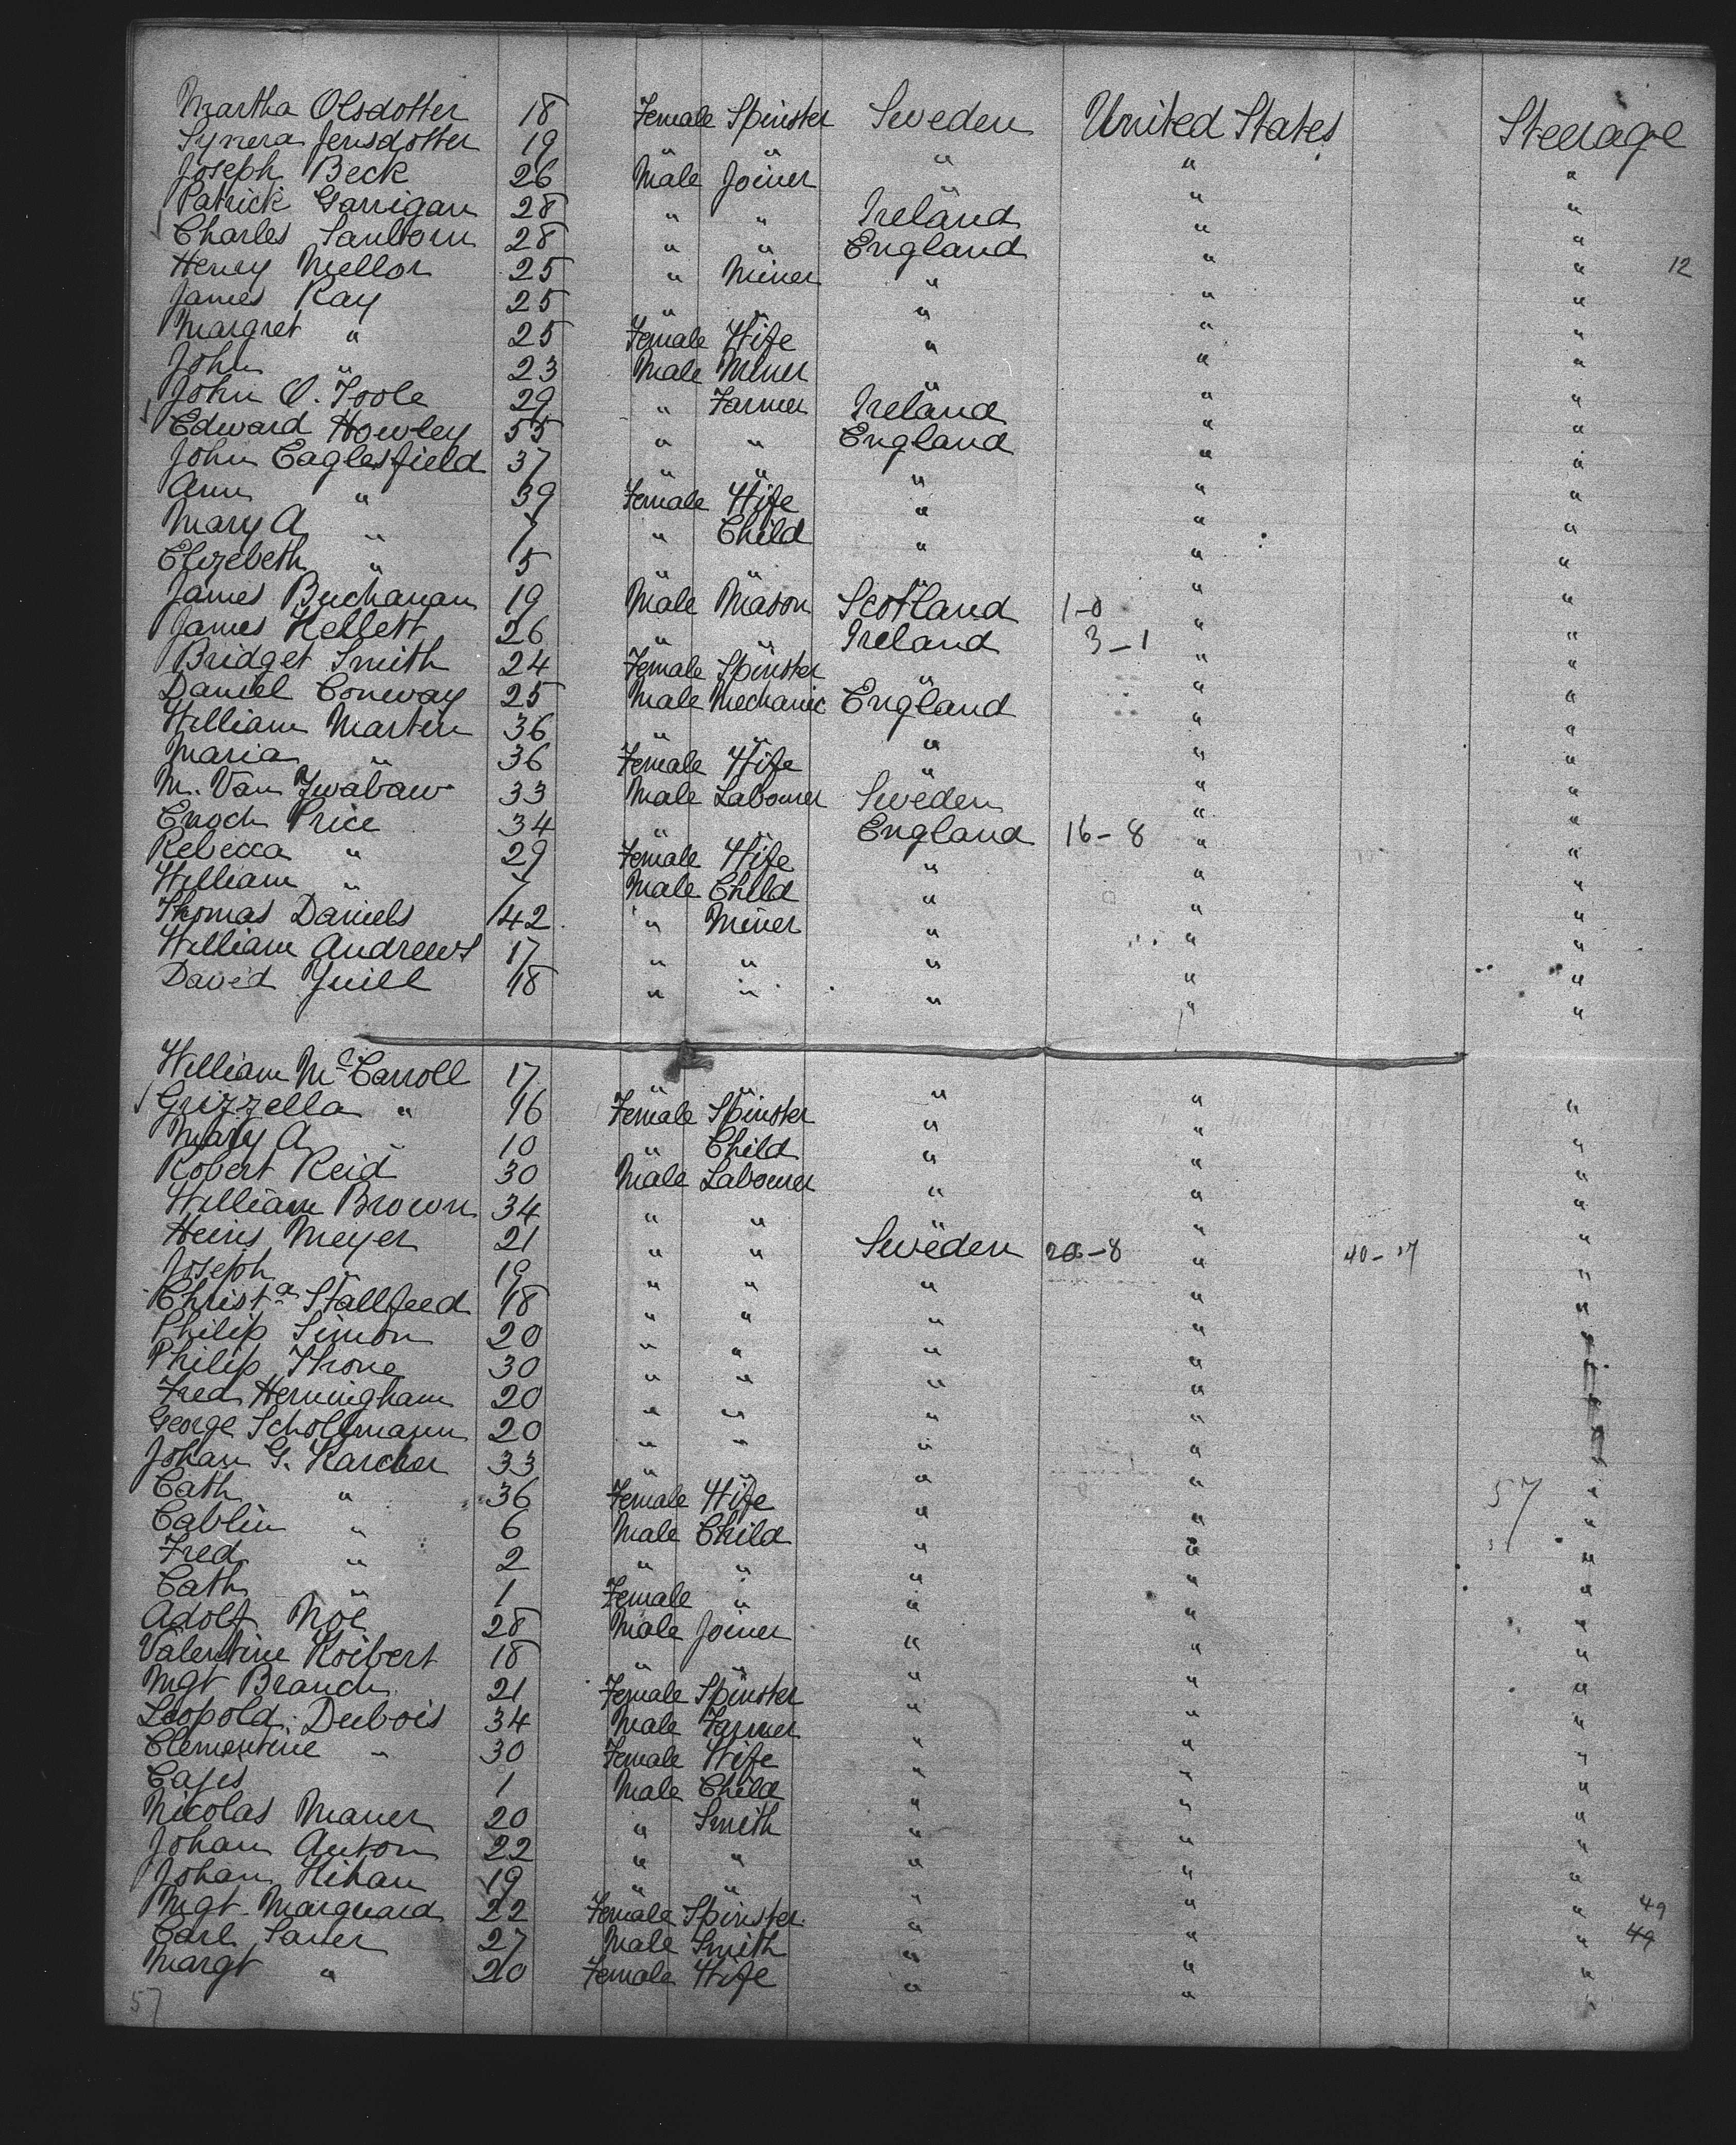 Martha Olsdotter 18 Female Spinster Sweden United States Steerage
Synera Jensdotter 19 " " " " "
Joseph Beck 26 Male Joiner " " "
Patrick Garrigan 28 " " Ireland " "
Charles Sanborn 28 " " England " "
Henry Mellor 25 " Miner " " " 12
James Ray 25 " " " " "
Margret " 25 Female Wife " " "
John " 23 Male Miner " " "
John O. Toole 29 " Farmer Ireland " "
Edward Howley 55 " " England " "
John Eaglesfield 37 " " " " "
Ann " 39 Female Wife " " "
Mary A " 7 " Child " " "
Elizebeth " 5 " " " " "
James Buchanan 19 Male Mason Scotland 1-0 " "
James Kellett 26 " " Ireland 3-1 " "
Bridget Smith 24 Female Spinster " " "
Daniel Conway 25 Male Mechanic England " "
William Marten 36 " " " " "
Maria " 36 Female Wife " " "
M. Van 33 Male Labourer Sweden " "
Enoch Price 34 " " England 16-8 " "
Rebecca " 29 Female Wife " " "
William " 7 Male Child " " "
Thomas Daniels 42 " Miner " " "
William Andrews 17 " " " " "
David Yuill 18 " " " " "
William McCarroll 17 " " " " "
Grizzella " 16 Female Spinster " " "
Mary A " 10 " Child " " "
Robert Reid 30 Male Labourer " " "
William Brown 34 " " " " "
Heins Meyer 21 " " Sweden " "
Joseph " 19 " " " " "
Christa Stallfeed 18 " " " " "
Philip Simon 20 " " " " "
Philip Throne 30 " " " " "
Fred Herningham 20 " " " " "
George Schollmann 20 " " " " "
Johan G. Karcher 33 " " " " "
Cath " 36 Female Wife " " 57 "
Cablin " 6 Male Child " " "
Fred " 2 " " " " "
Cath " 1 Female " " " "
Adolf Noë 28 Male Joiner " " "
Valentine Koibert 18 " " " " "
Mgt Branch 21 Female Spinster " " "
Leopold Dubois 34 Male Farmer " " "
Clementine " 30 Female Wife " " "
1 Male Child " " "
Nicolas Mauer 20 " Smith " " "
Johan Anton 22 " " " " "
Johan Kihan 19 " " " " "
Mgt Marquard 22 Female Spinster " " " 49
Carl Sauer 27 Male Smith " " " 49
Margt " 20 Female Wife " " "
57